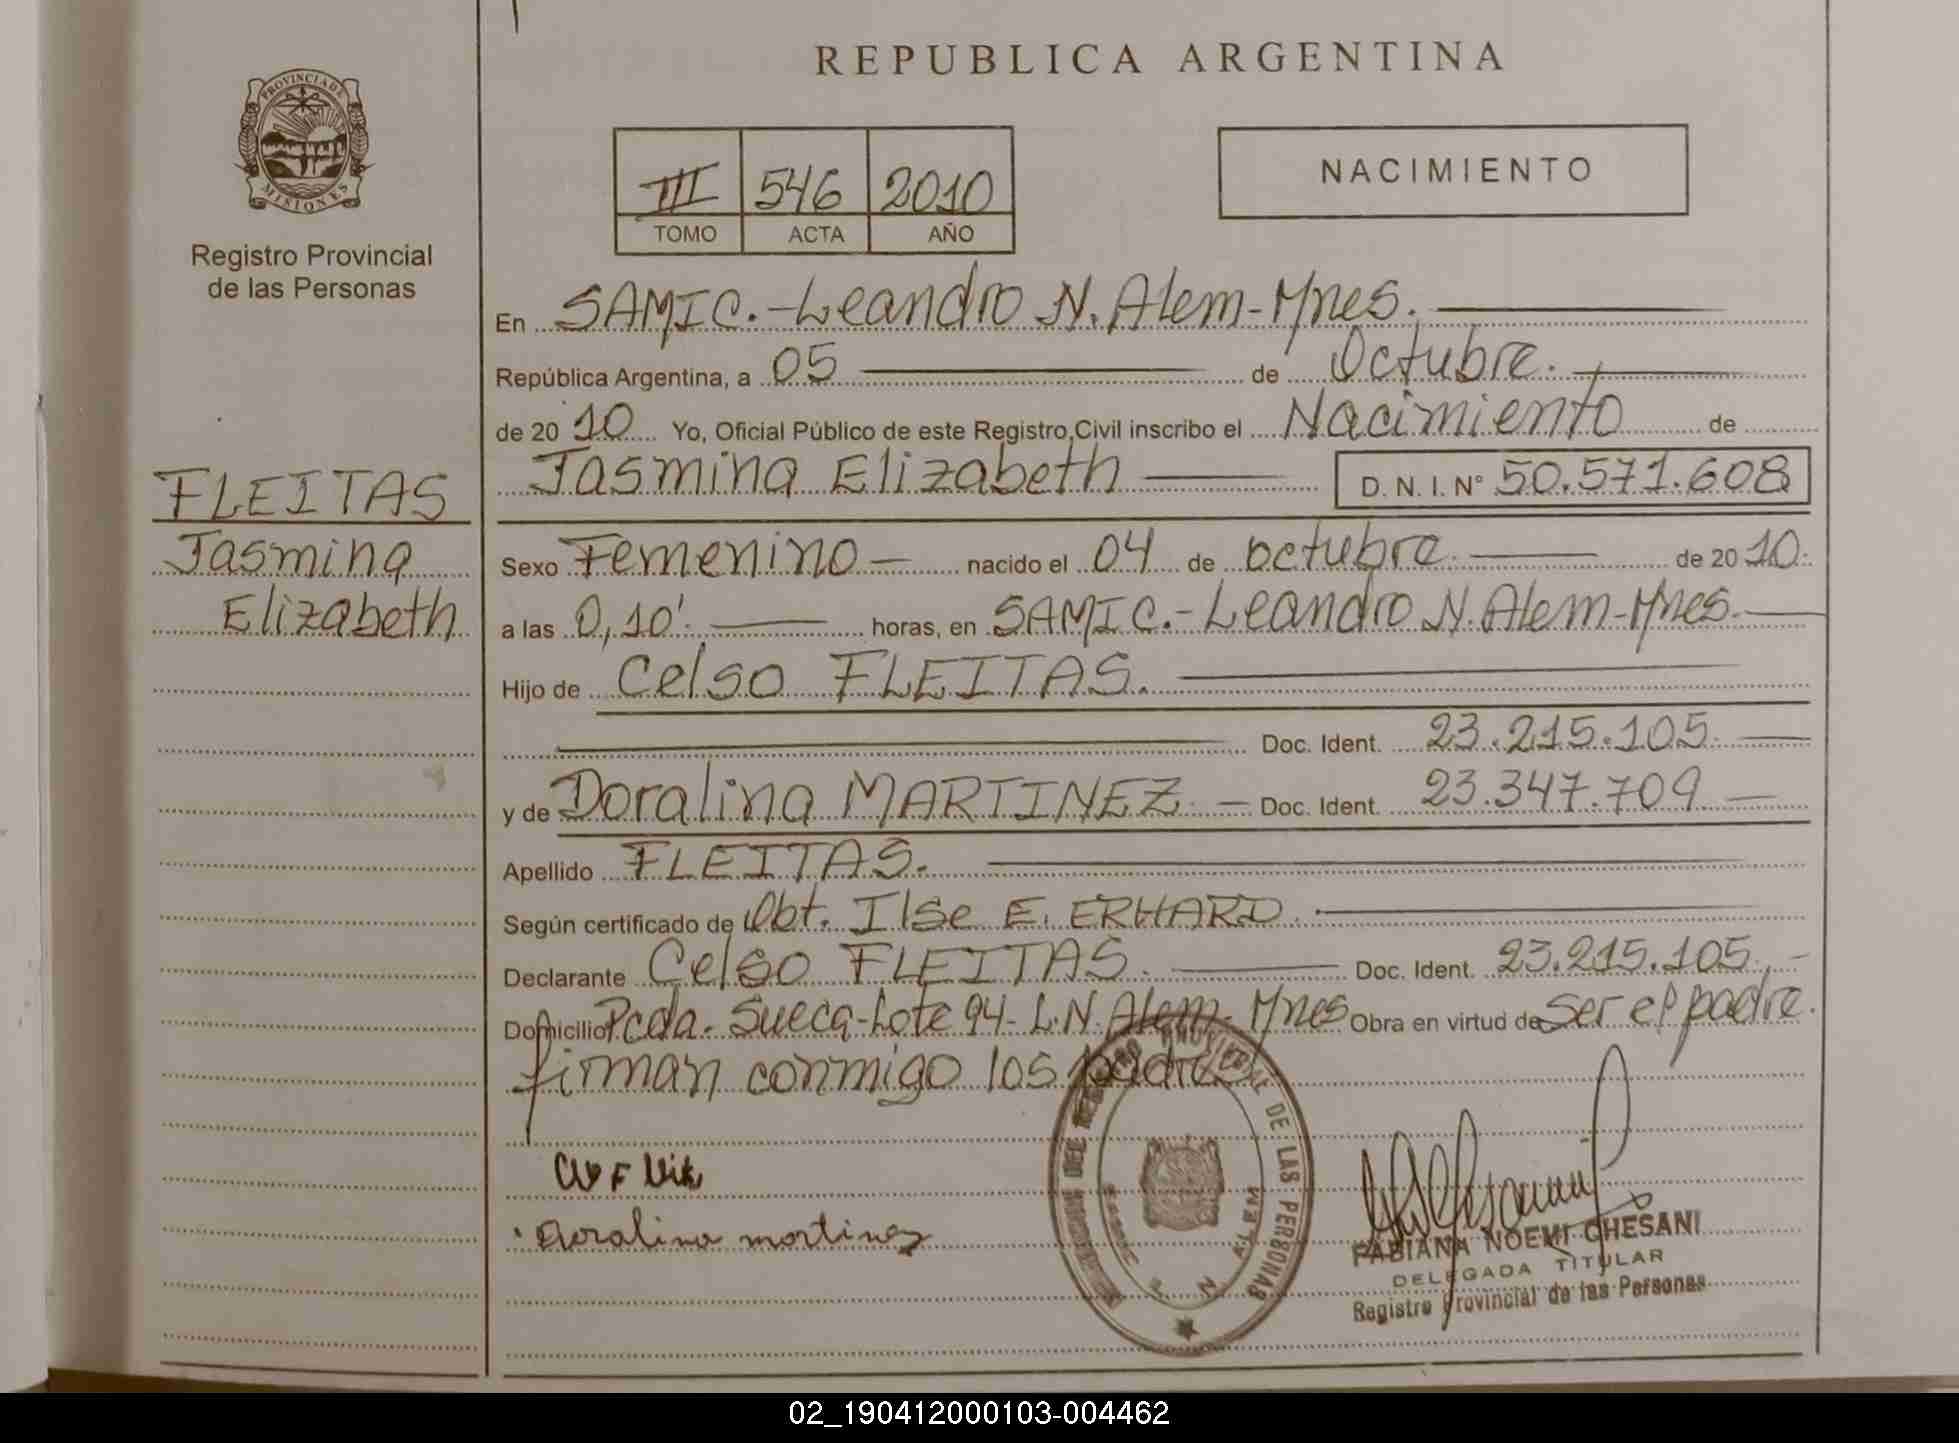 REPUBLICA ARGENTINA
PROVINCIA DE MISIONES
Registro Provincial
de las Personas
III 546 2010
TOMO ACTA AÑO
NACIMIENTO
En SAMIC.-Leandro N. Alem-Mnes.
República Argentina, a 05 de Octubre.
de 2010 Yo, Oficial Público de este Registro Civil inscribo el Nacimiento de
Jasmina Elizabeth D. N. I. N° 50.571.608
FLEITAS
Jasmina
Elizabeth
Sexo Femenino — nacido el 04 de octubre. de 2010.
a las 0,10'. horas, en SAMIC.-Leandro N. Alem-Mnes.
Hijo de Celso FLEITAS.
Doc. Ident. 23.215.105.
y de Doralina MARTINEZ. — Doc. Ident. 23.347.709
Apellido FLEITAS.
Según certificado de Obt. Ilse E. ERHARD.
Declarante Celso FLEITAS. Doc. Ident. 23.215.105.-
Domicilio Pcda. Sueca-Lote 94-L.N. Alem-Mnes Obra en virtud de Ser el padre.
firman conmigo los padres
Doralina martinez
DEL REGISTRO PROVINCIAL DE LAS PERSONAS
N. ALEM
FABIANA NOEMI GHESANI
DELEGADA TITULAR
Registro Provincial de las Personas
02_190412000103-004462